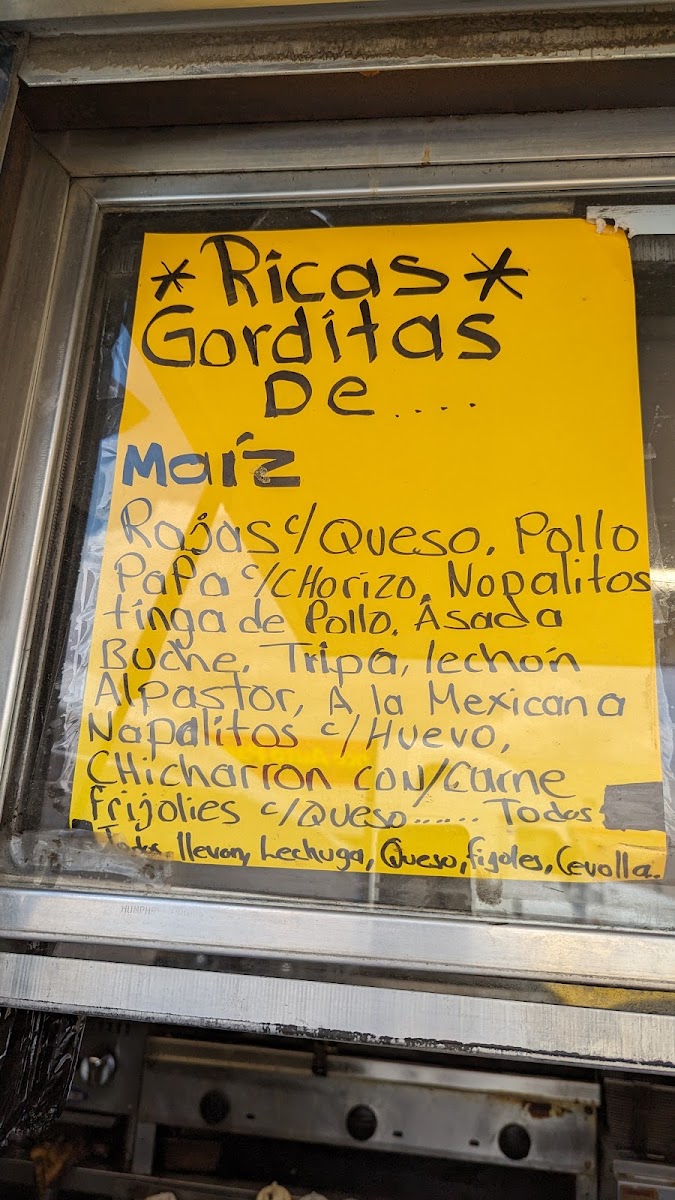 *Ricas*
Gorditas
De....
Maíz
Rajas c/Queso, Pollo
PaPa c/CHorizo, Nopalitos
tinga de Pollo, Asada
Buche, Tripa, lechón
Alpastor, A la Mexicana
Napalitos c/Huevo,
CHicharron con/Carne
frijolies c/Queso...... Todas
llevan, Lechuga, Queso, fijoles, Cevolla.